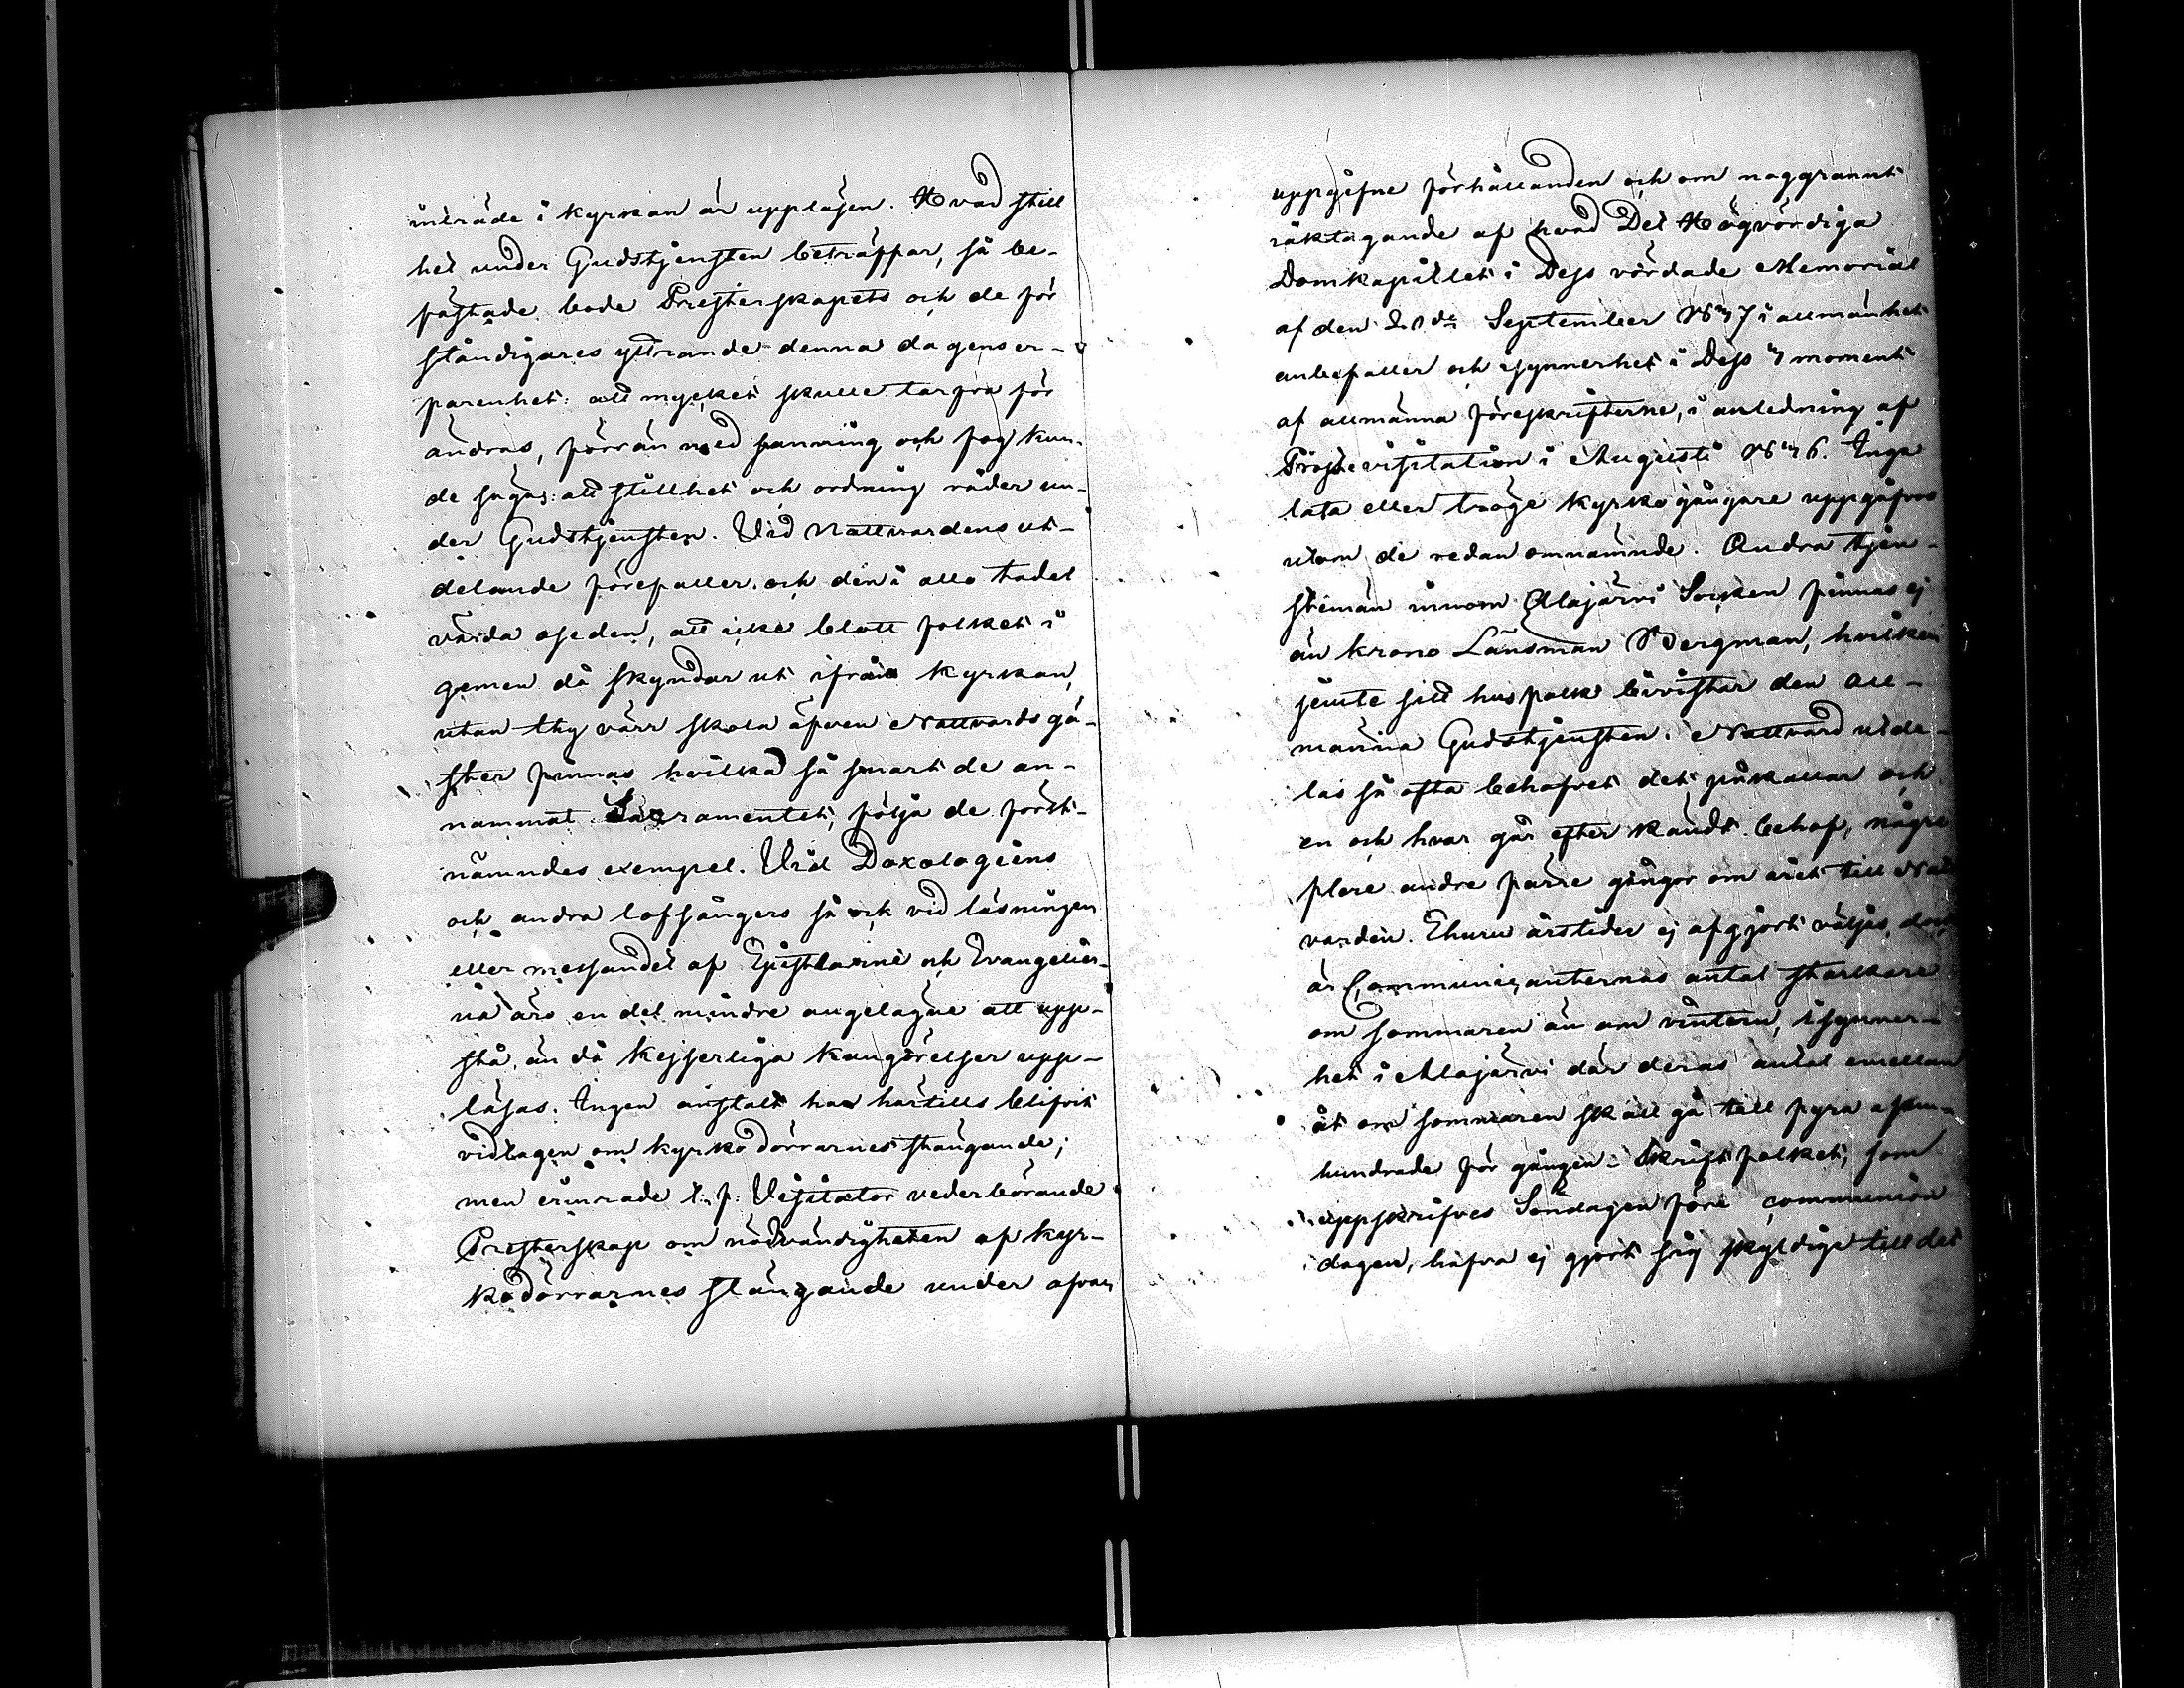 inträde i kyrkan är uppläsen. Hvad still
het under Gudstjensten beträffar, så be-
fästade både Presterskapets och de för
ståndigares yttrande denna dagens er-
farenhet: att mycket skulle tarfva för
ändras, förrän med sanning och fog kun-
de sägas: att stillhet och ordning råder un-
der Gudstjensten. Vid Nattvardens ut-
delande förefaller och den i allo tadel
värda oseden, att icke blott folket i
gemen då skyndar ut ifrån kyrkan,
utan thy värr skola äfven Nattvards gä-
ster finnas hvilka så snart de an-
nammat Sacramentet, följa de först-
nämndes exempel. Vid Doxologiens
och andra lofsångers så ock vid läsningen
eller messandet af Epistlarne och Evangelier-
na äro en del mindre angelägne att upp-
stå, än då Kejserliga Kungörelser upp-
läsas. Ingen anstalt har härtills blifvit
vidtagen om kyrko dörrarnes stängande;
men erinrade t: f: Visitator vederbörande
Presterskap om nödvändigheten af kyr-
kodörrarnes stängande under ofvan
uppgifne förhållanden och om noggrannt
iakttagande af hvad Det Högvördiga
Domkapitlet i Dess vördade Memorial
af den 21de September 1847 i allmänhet
anbefaller och isynnerhet i Dess 4 moment
af allmänna föreskrifterne, i anledning af
Prostevisitation i Augusti 1846. Inga
lata eller tröge kyrkogångare uppgåfvos
utom de redan omnämnde. Andra tjen-
stemän innom Alajärvi Socken finnas ej
än krono Länsman Bergman, hvilken
jemte sitt husfolk bivistar den all-
männa Gudstjensten. Nattvard utde-
las så ofta behofvet det påkallar och
en och hvar går efter kändt behof, någre
flere andre färre gångor om året till Natt
varden. Ehuru årstider ej afgjort väljas, dock
är Communicanternas antal starkare
om sommaren än om vintern, isynner-
het i Alajärvi där deras antal emellan
åt om sommaren skall gå till fyra a fem-
hundrade för gången. Skriftfolket, som
uppskrifves Söndagen före communion
dagen, hafva ej gjort sig skyldige till det